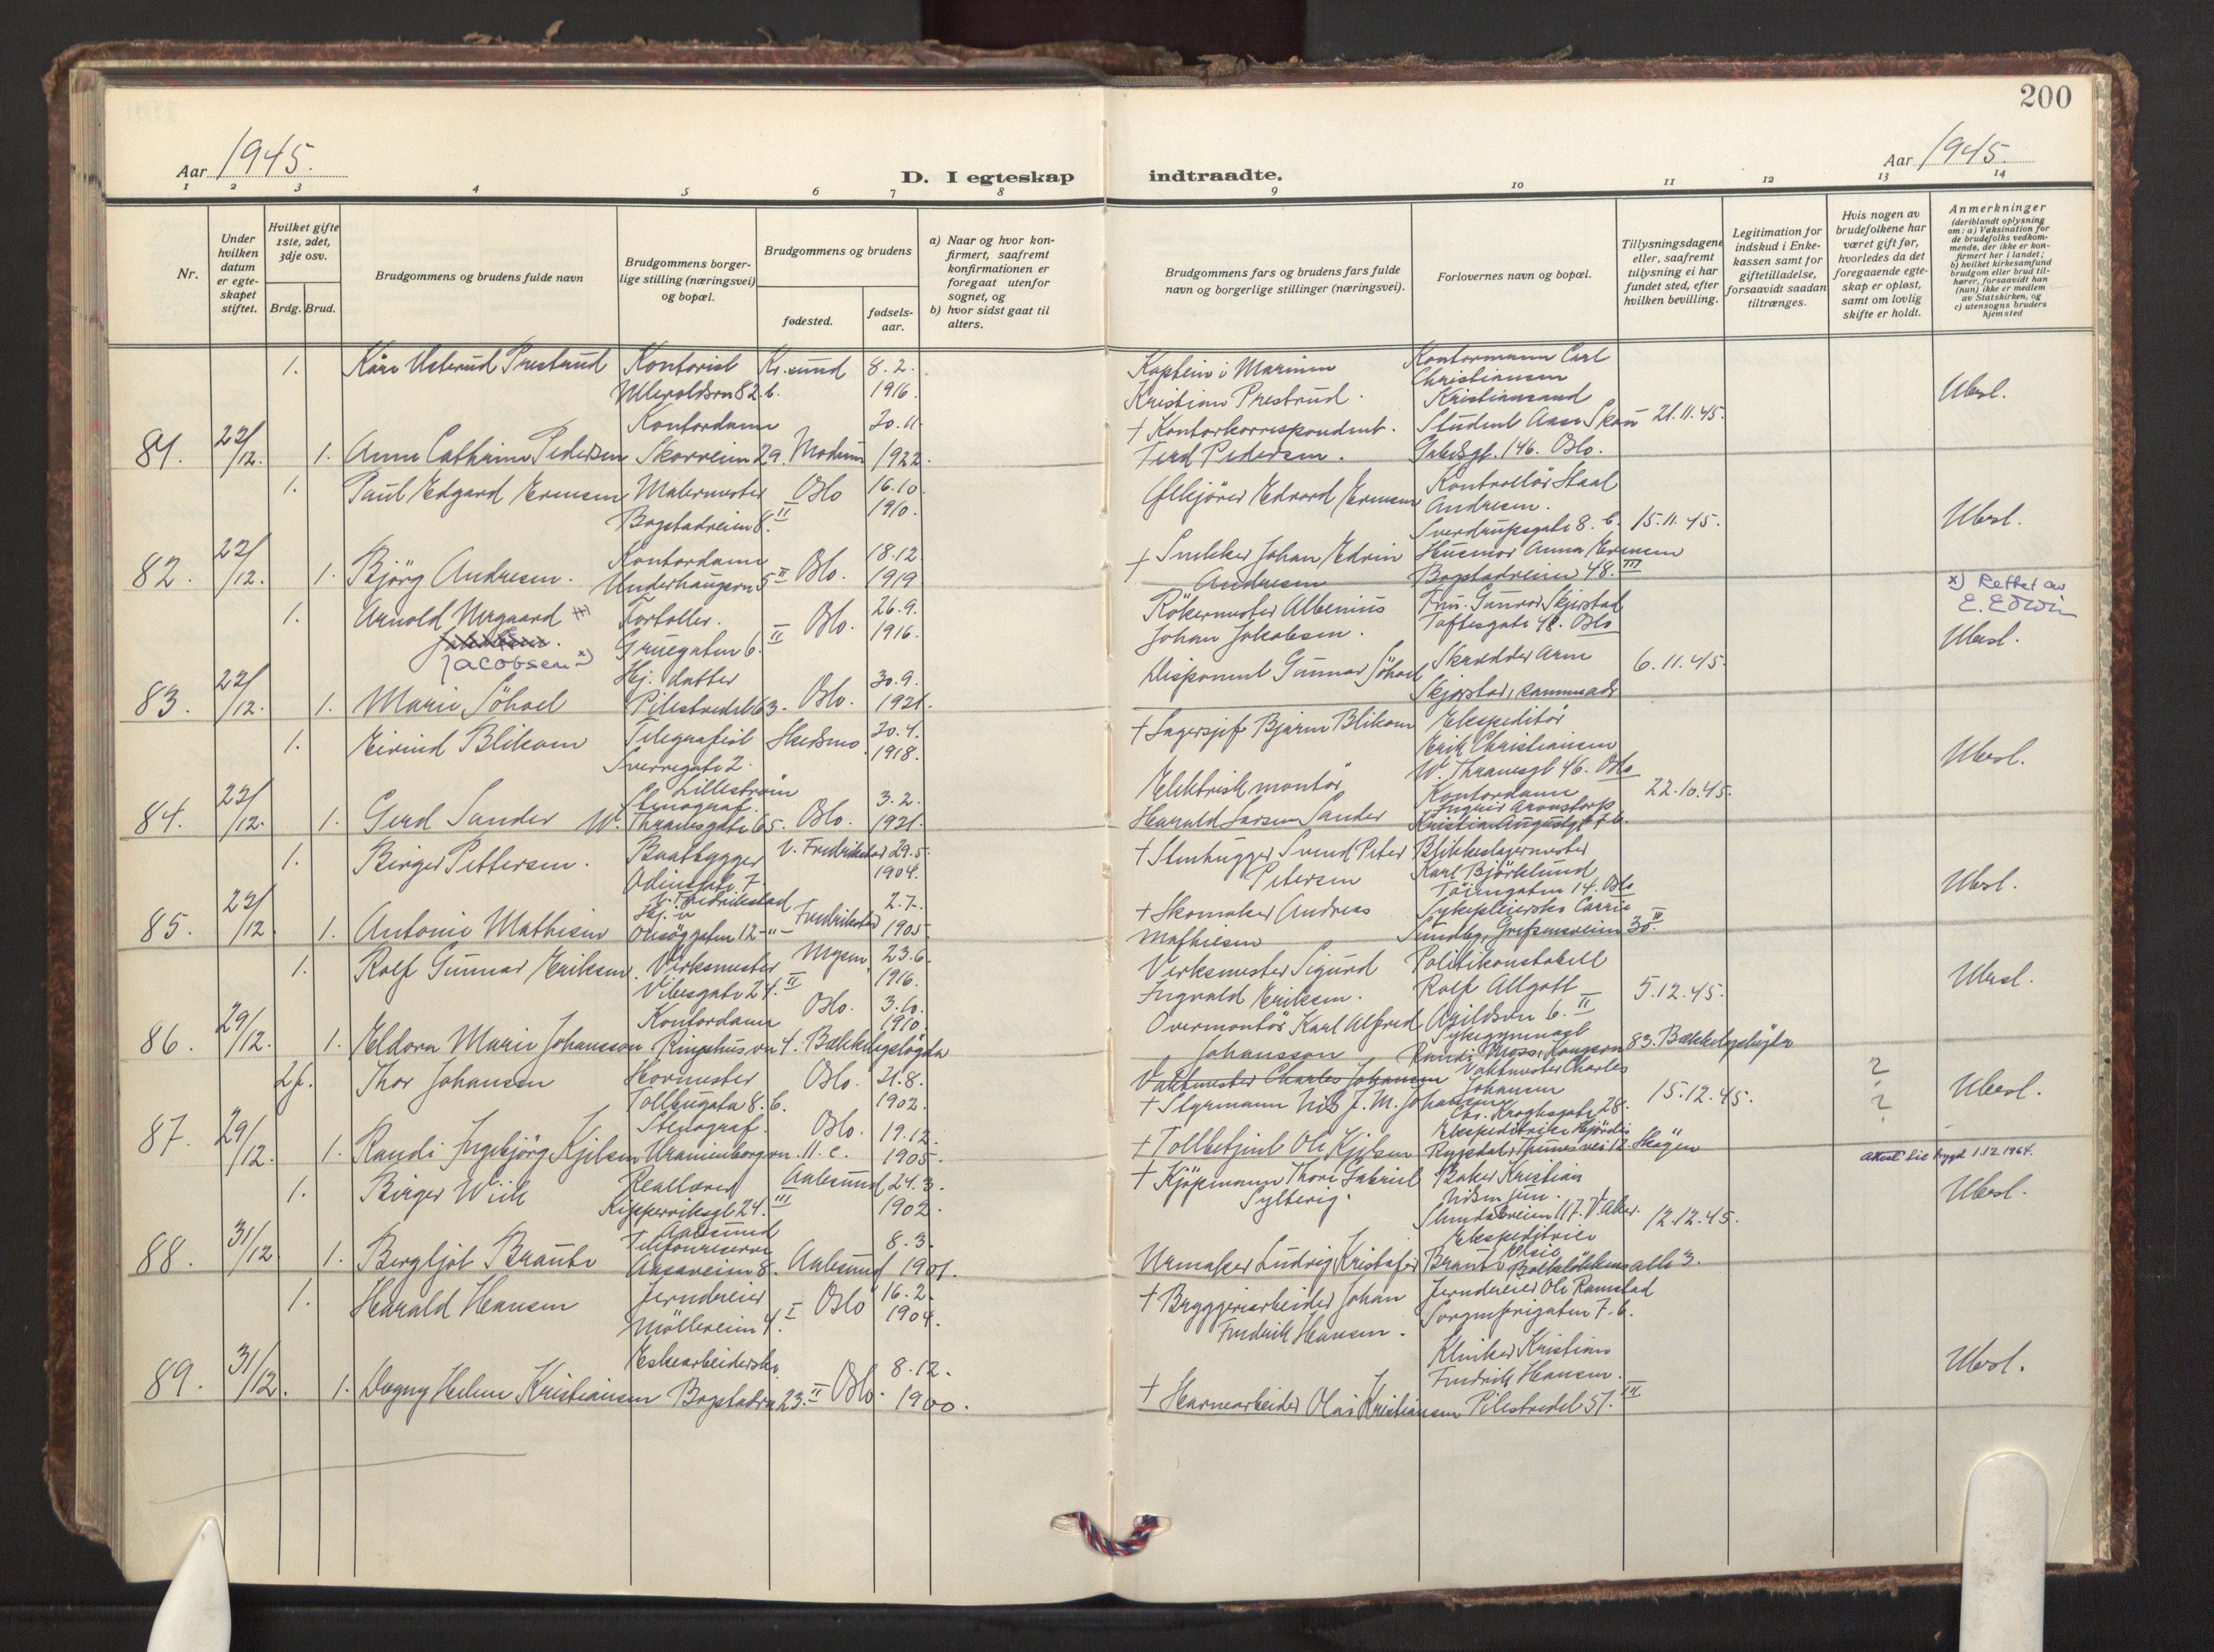 200
Aar 1945.
Aar 1945.
D. I egteskap indtraadte.
1 2 3 4 5 6 7 8 9 10 11 12 13 14
Nr.
Under hvilken datum er egteskapet stiftet.
Hvilket gifte 1ste, 2det, 3dje osv.
Brdg. Brud.
Brudgommens og brudens fulde navn
Brudgommens borgerlige stilling (næringsvei) og bopæl.
Brudgommens og brudens
fødested.
fødselsaar.
a) Naar og hvor konfirmert, saafremt konfirmationen er foregaat utenfor sognet, og
b) hvor sidst gaat til alters.
Brudgommens fars og brudens fars fulde navn og borgerlige stillinger (næringsvei).
Forlovernes navn og bopæl.
Tillysningsdagene eller, saafremt tillysning ei har fundet sted, efter hvilken bevilling.
Legitimation for indskud i Enkekassen samt for giftetilladelse, forsaavidt saadan tiltrænges.
Hvis nogen av brudefolkene har været gift før, hvorledes da det foregaaende egteskap er opløst, samt om lovlig skifte er holdt.
Anmerkninger
(deriblandt oplysning om: a) Vaksination for de brudefolks vedkommende, der ikke er konfirmert her i landet; b) hvilket kirkesamfund brudgom eller brud tilhører, forsaavidt han (hun) ikke er medlem av Statskirken, og c) utensogns bruders hjemsted
1. Kåre Usterud Prestrud Kontorist Kr.sund 8.2. Kaptein i Marinen Kontormann Carl
Ullevoldsvn 82 b. 1916. Kristian Prestrud. Christiansen Kristiansand Ubesl.
81. 22/12. 1. Anne Cathrine Pedersen Kontordame Skovveien 29. Modum 20.11. 1922. † Kontorkorrespondent. Ferd Pedersen. Student Aase Skau Gabelsgt. 146. Oslo. 21.11.45.
1. Paul Edgard Evensen Malermester Oslo 16.10. Edvard Evensen Kontrollör Staal
Bogstadveien 8. II 1910. Andresen. Sverdrupsgate 8. b. 15.11.45. Ubesl.
82. 22/12. 1. Björg Andresen. Kontordame Underhaugsvn 5 II Oslo. 18.12 1919 † Snekker Johan Edvin Andresen Husmor Anna Evensen Bogstadveien 48. III
1. Arnold Nergaard Jacobsen x) Fortoller. Gruegaten 6. II Oslo. 26.9. 1916. Rökermester Albenius Johan Jakobsen. Fru. Gunvor Skjerstad Toftesgate 48. Oslo
x) Rettet av
Ubesl.
83. 22/12. 1. Marie Söhoel Hj. datter Pilestredet 63. Oslo. 30.9. 1921. Disponent Gunnar Söhoel Skredder Arne 6.11.45.
1. Eivind Blikom Telegrafist Skedsmo 20.4. 1918. † Lagersjef Bjarne Blikom Ekspeditör Erik Christiansen
Sverregate 2. Lilleström W. Thranesgt 46. Oslo Ubesl.
84. 22/12. 1. Gerd Sander Stenograf. W. Thranesgate 65. Oslo. 3.2. 1921. Elektrisk montör Harald Larsen Sander Kontordame Kristian Augustsgt 7 b. 22.10.45.
1. Birger Pettersen. Baatbygger V. Fredrikstad 29.5. 1904. † Stenhugger Svend Peter Petersen Blikkeslagermester Karl Björklund
Odinsgate 7. V. Fredrikstad Töiengaten 14. Oslo Ubesl.
85. 22/12 1. Antonie Mathisen Fredrikstad 2.7. 1905. † Skomaker Andreas Mathiesen Sykepleierske Carrie Sundby, Grefsensveien 30. II
1. Rolf Gunnar Eriksen. Verksmester Vibesgate 24. II Mysen 23.6. 1916. Verksmester Sigurd Ingvald Eriksen. Politikonstabell Rolf Allgott 5.12.45. Ubesl.
86. 29/12. 1. Eldora Marie Johansson Kontordame Ringshusvn 4. Bækkelagshögda Oslo. 3.10. 1910. Overmontör Karl Alfred Johansson Sykegymnast Randi Moss, Kongsvn 83. Bækkelagshögda
2f. Thor Johansen Hovmester Tollbugata 8. b. Oslo. 21.8. 1902. Vaktmester Charles Johansen † Styrmann Nils J. M. Johansen Vaktmester Charles Johansen Chr. Kroghsgate 28. 15.12.45. ? ? Ubesl.
87. 29/12. 1. Randi Ingebjörg Kjelsen Stenograf. Uranienborgvn. 11. c. Oslo. 19.12. 1905. † Tollbetjent Ole Kjelsen Ekspeditrise Hjördis Thunesvei 12. Skøyen
Attest lit bygd 1.12.1964.
1. Birger Wiik Reallærer Kipperviksgt 24. III Aalesund Aalesund 24.3. 1902. † Kjöpmann Thore Gabriel Sylterig. Baker Kristian Nilsen jun. Slemdalsveien 117. V. Aker. 12.12.45. Ubesl.
88. 31/12. 1. Bergljot Braute Akersveien 8. Aalesund 8.3. 1901. Urmaker Ludvig Kristofer Braute Ekspeditrise Elsie alle 3.
1. Harald Hansen Jerndreier Mölleveien 4. I Oslo 16.2. 1904. † Bryggeriarbeider Johan Fredrik Hansen. Jerndreier Ole Ramstad Sorgenfrigaten 7. b.
89. 31/12. 1. Dagny Helene Kristiansen Eskearbeiderske Bogstadvn 23. II Oslo. 8.12. 1900. † Havnearbeider Olai Kristiansen Klinker Kristian Fredrik Hansen. Pilestredet 57. III Ubesl.